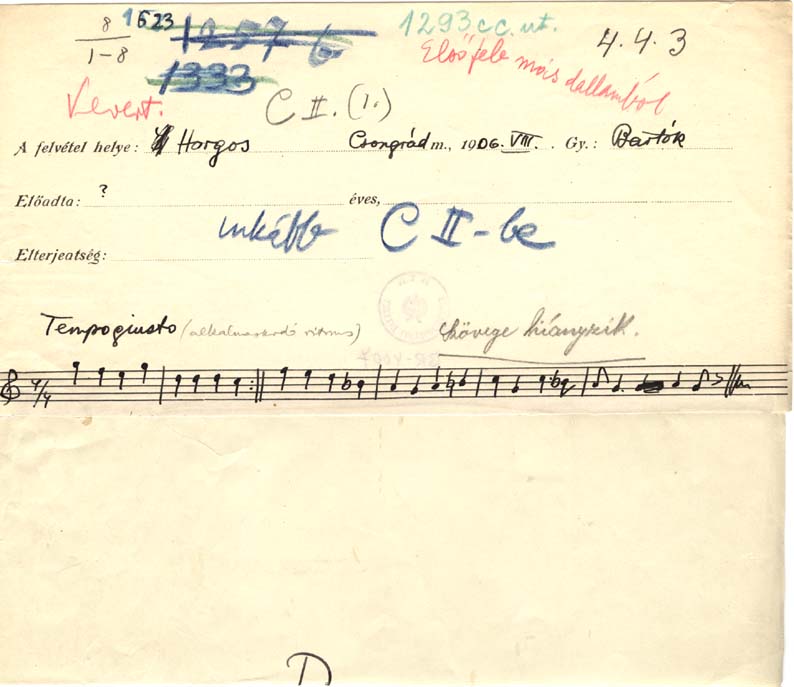 8
1-8
1623
1257 b
1333
1293 cc. ut.
4.4.3
Előfele más dallamból
Kevert.
C II. (1.)
A felvétel helye: Horgos Csongrád m., 1906. VIII. Gy.: Bartók
Előadta: ? éves,
inkább C II-be
Elterjeatség:
Tempogiusto (alkalmazkodó ritmus) szövege hiányzik.
4/4
D